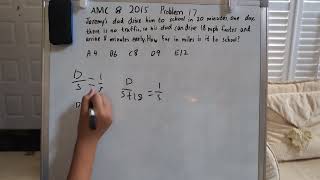 AMC 8 2015 Problem 17
Jeremy's dad drives him to school in 20 minutes. One day
there is no traffic, so his dad can drive 18 mph faster and
arrive 8 minutes early. How far in miles is it to school?
A 4 B 6 C 8 D 9 E 12
D/S = 1/3 D/S+18 = 1/5
D